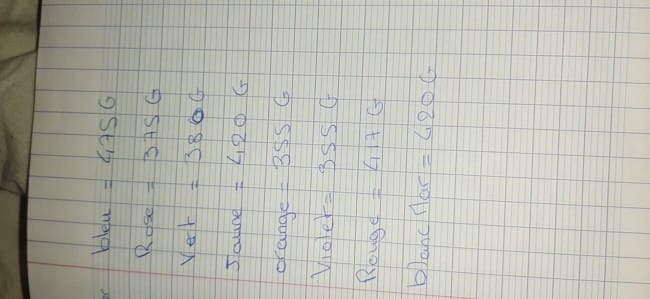 bleu = 475 G
Rose = 375 G
Vert = 380 G
Jaune = 420 G
orange = 355 G
Violet = 355 G
Rouge = 417 G
blanc Mar = 420 G